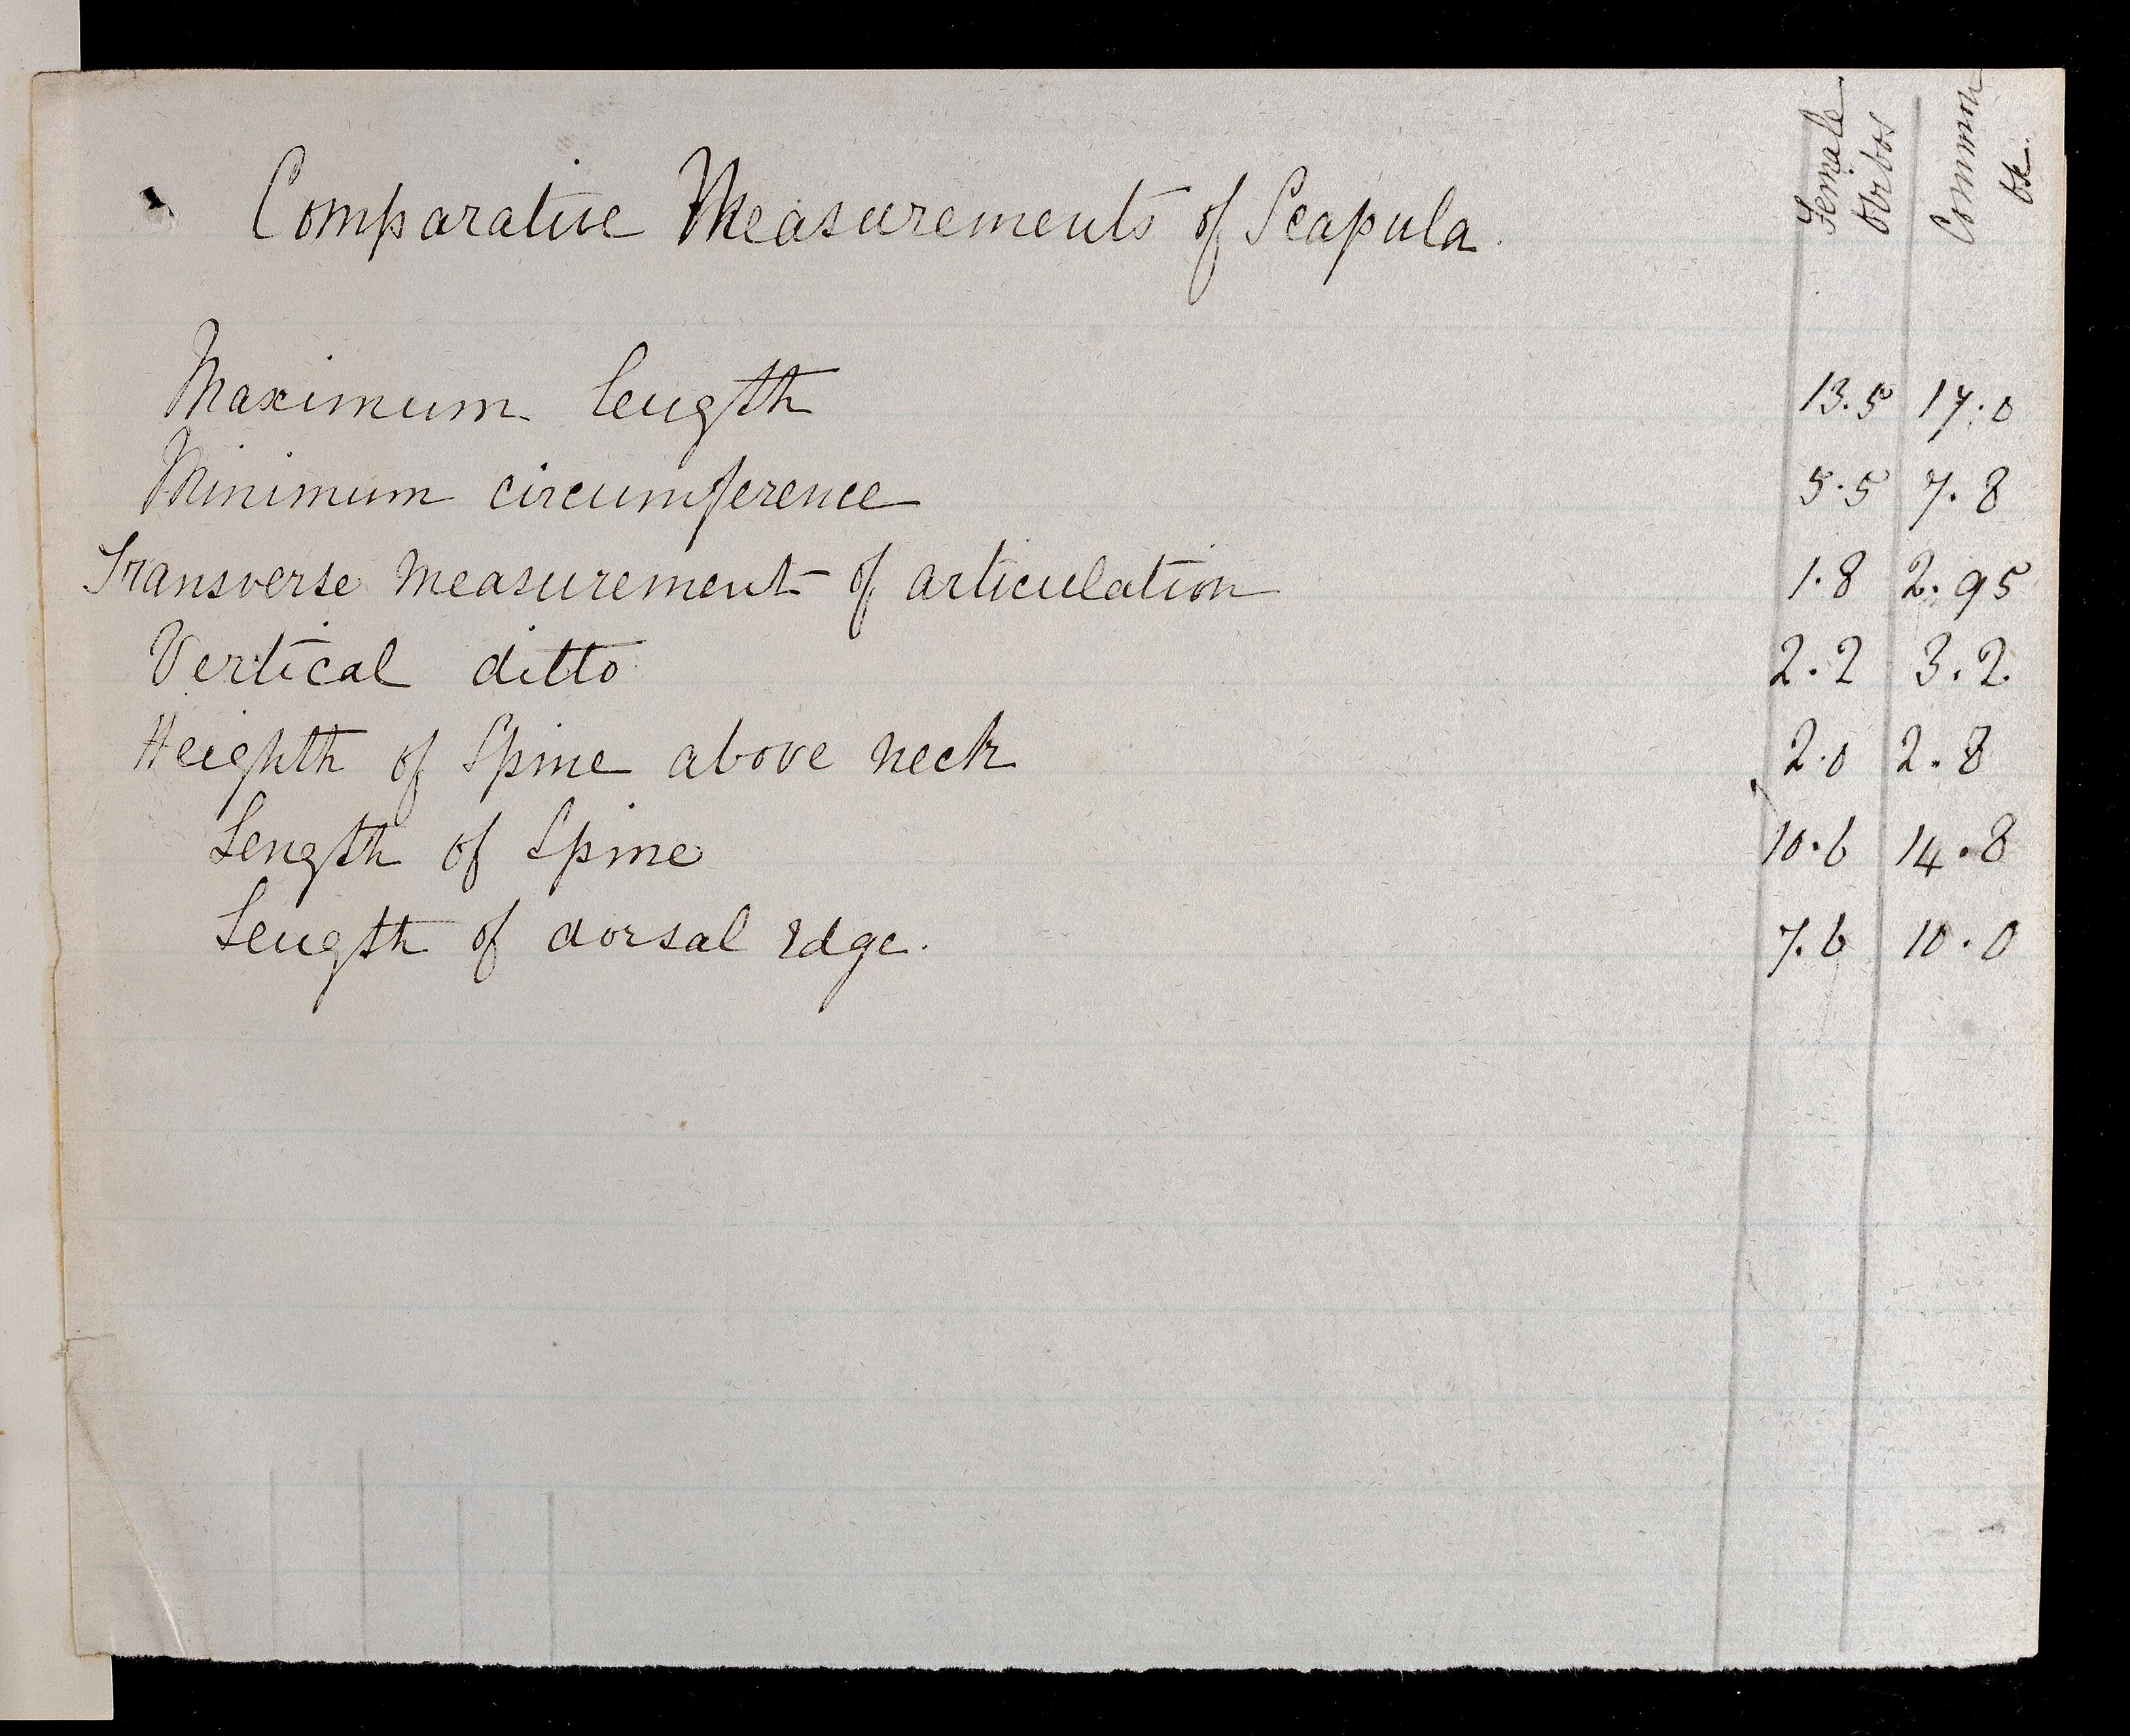 Comparative Measurements of Scapula.
Female
Ovibos
Common
Ox.
Maximum length 13.5 17.0
Minimum circumference 5.5 7.8
Transverse measurement of articulation 1.8 2.95
Vertical ditto 2.2 3.2
Heighth of Spine above neck 2.0 2.8
Length of Spine 10.6 14.8
Length of dorsal edge. 7.6 10.0